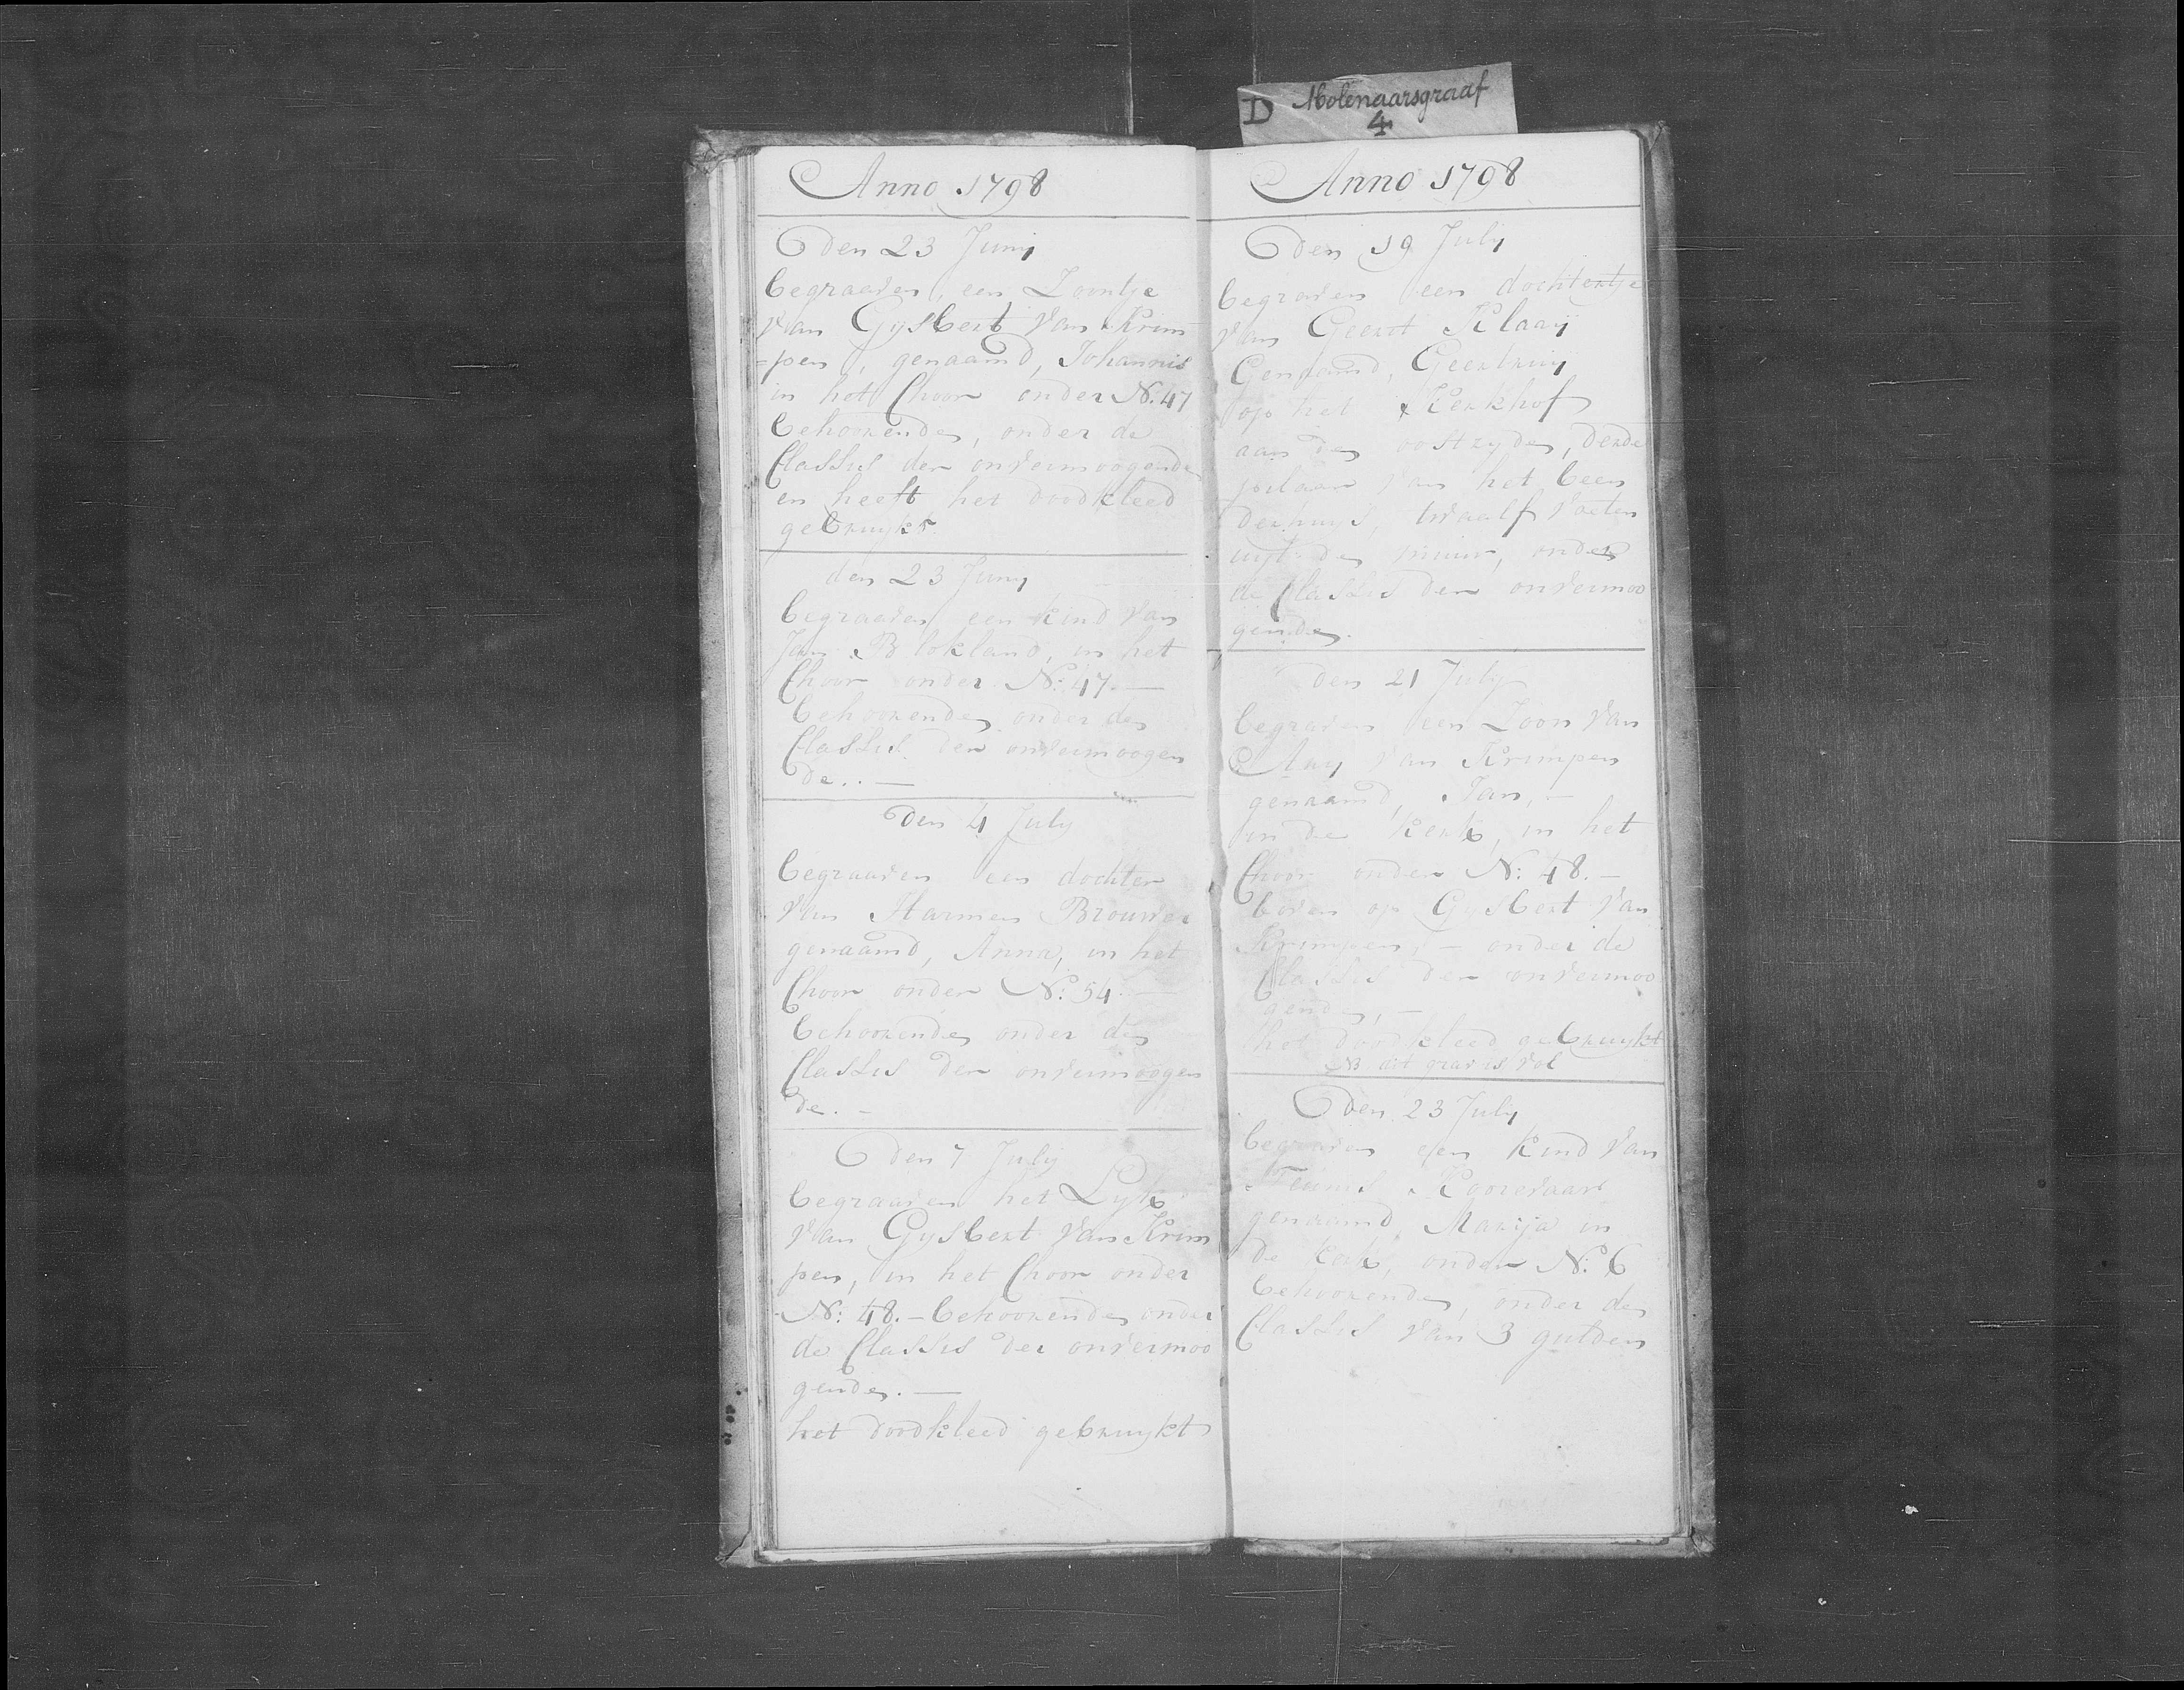 D Molenaarsgraaf
4
Anno 1798
den 23 Junij
begraaven, een Zoontje
van Gysbert van Krim
=pen, genaamd, Johannis
in het Choor onder N:47
behoorende, onder de
Classis der onvermoogende
en heeft het doodkleed
gebruykt
den 23 Junij
begraaven een kind van
Jan Blokland, in het
Choor onder N: 47. —
behoorende onder de
Classis der onvermoogen
de.. —
den 4 July
begraaven een dochter
van Harmen Brouwer
genaamd, Anna, in het
Choor onder N: 54. —
behoorende onder de
Classis der onvermoogen
de. —
den 7 July
begraaven het Lyk
van Gysbert van Krim
pen, in het Choor onder
N: 48. – behoorende onder
de Classis der onvermoo
gende. —
het doodkleed gebruykt
Anno 1798
den 19 July
begraven een dochtertje
van Geerit Klaaij
Genaamd, Geertruij
op het Kerkhof
aan de oostzyde, derde
pilaar van het been
derhuys, twaalf voeten
uyt de muur, onder
de Classis der onvermoo
gende.
den 21 July
begraven een Zoon van
Aay van Krimpen
genaamd, Jan, —
in de Kerk, in het
Choor onder N: 48. —
boven op Gysbert van
Krimpen, – onder de
Classis der onvermoo
gende, —
het doodkleed gebruykt
NB dit grav is vol
den 23 July
begraven een kind van
Teunis
genaamd Marija in
de kerk, onder N: 6
behoorende, onder de
Classis van 3 gulden